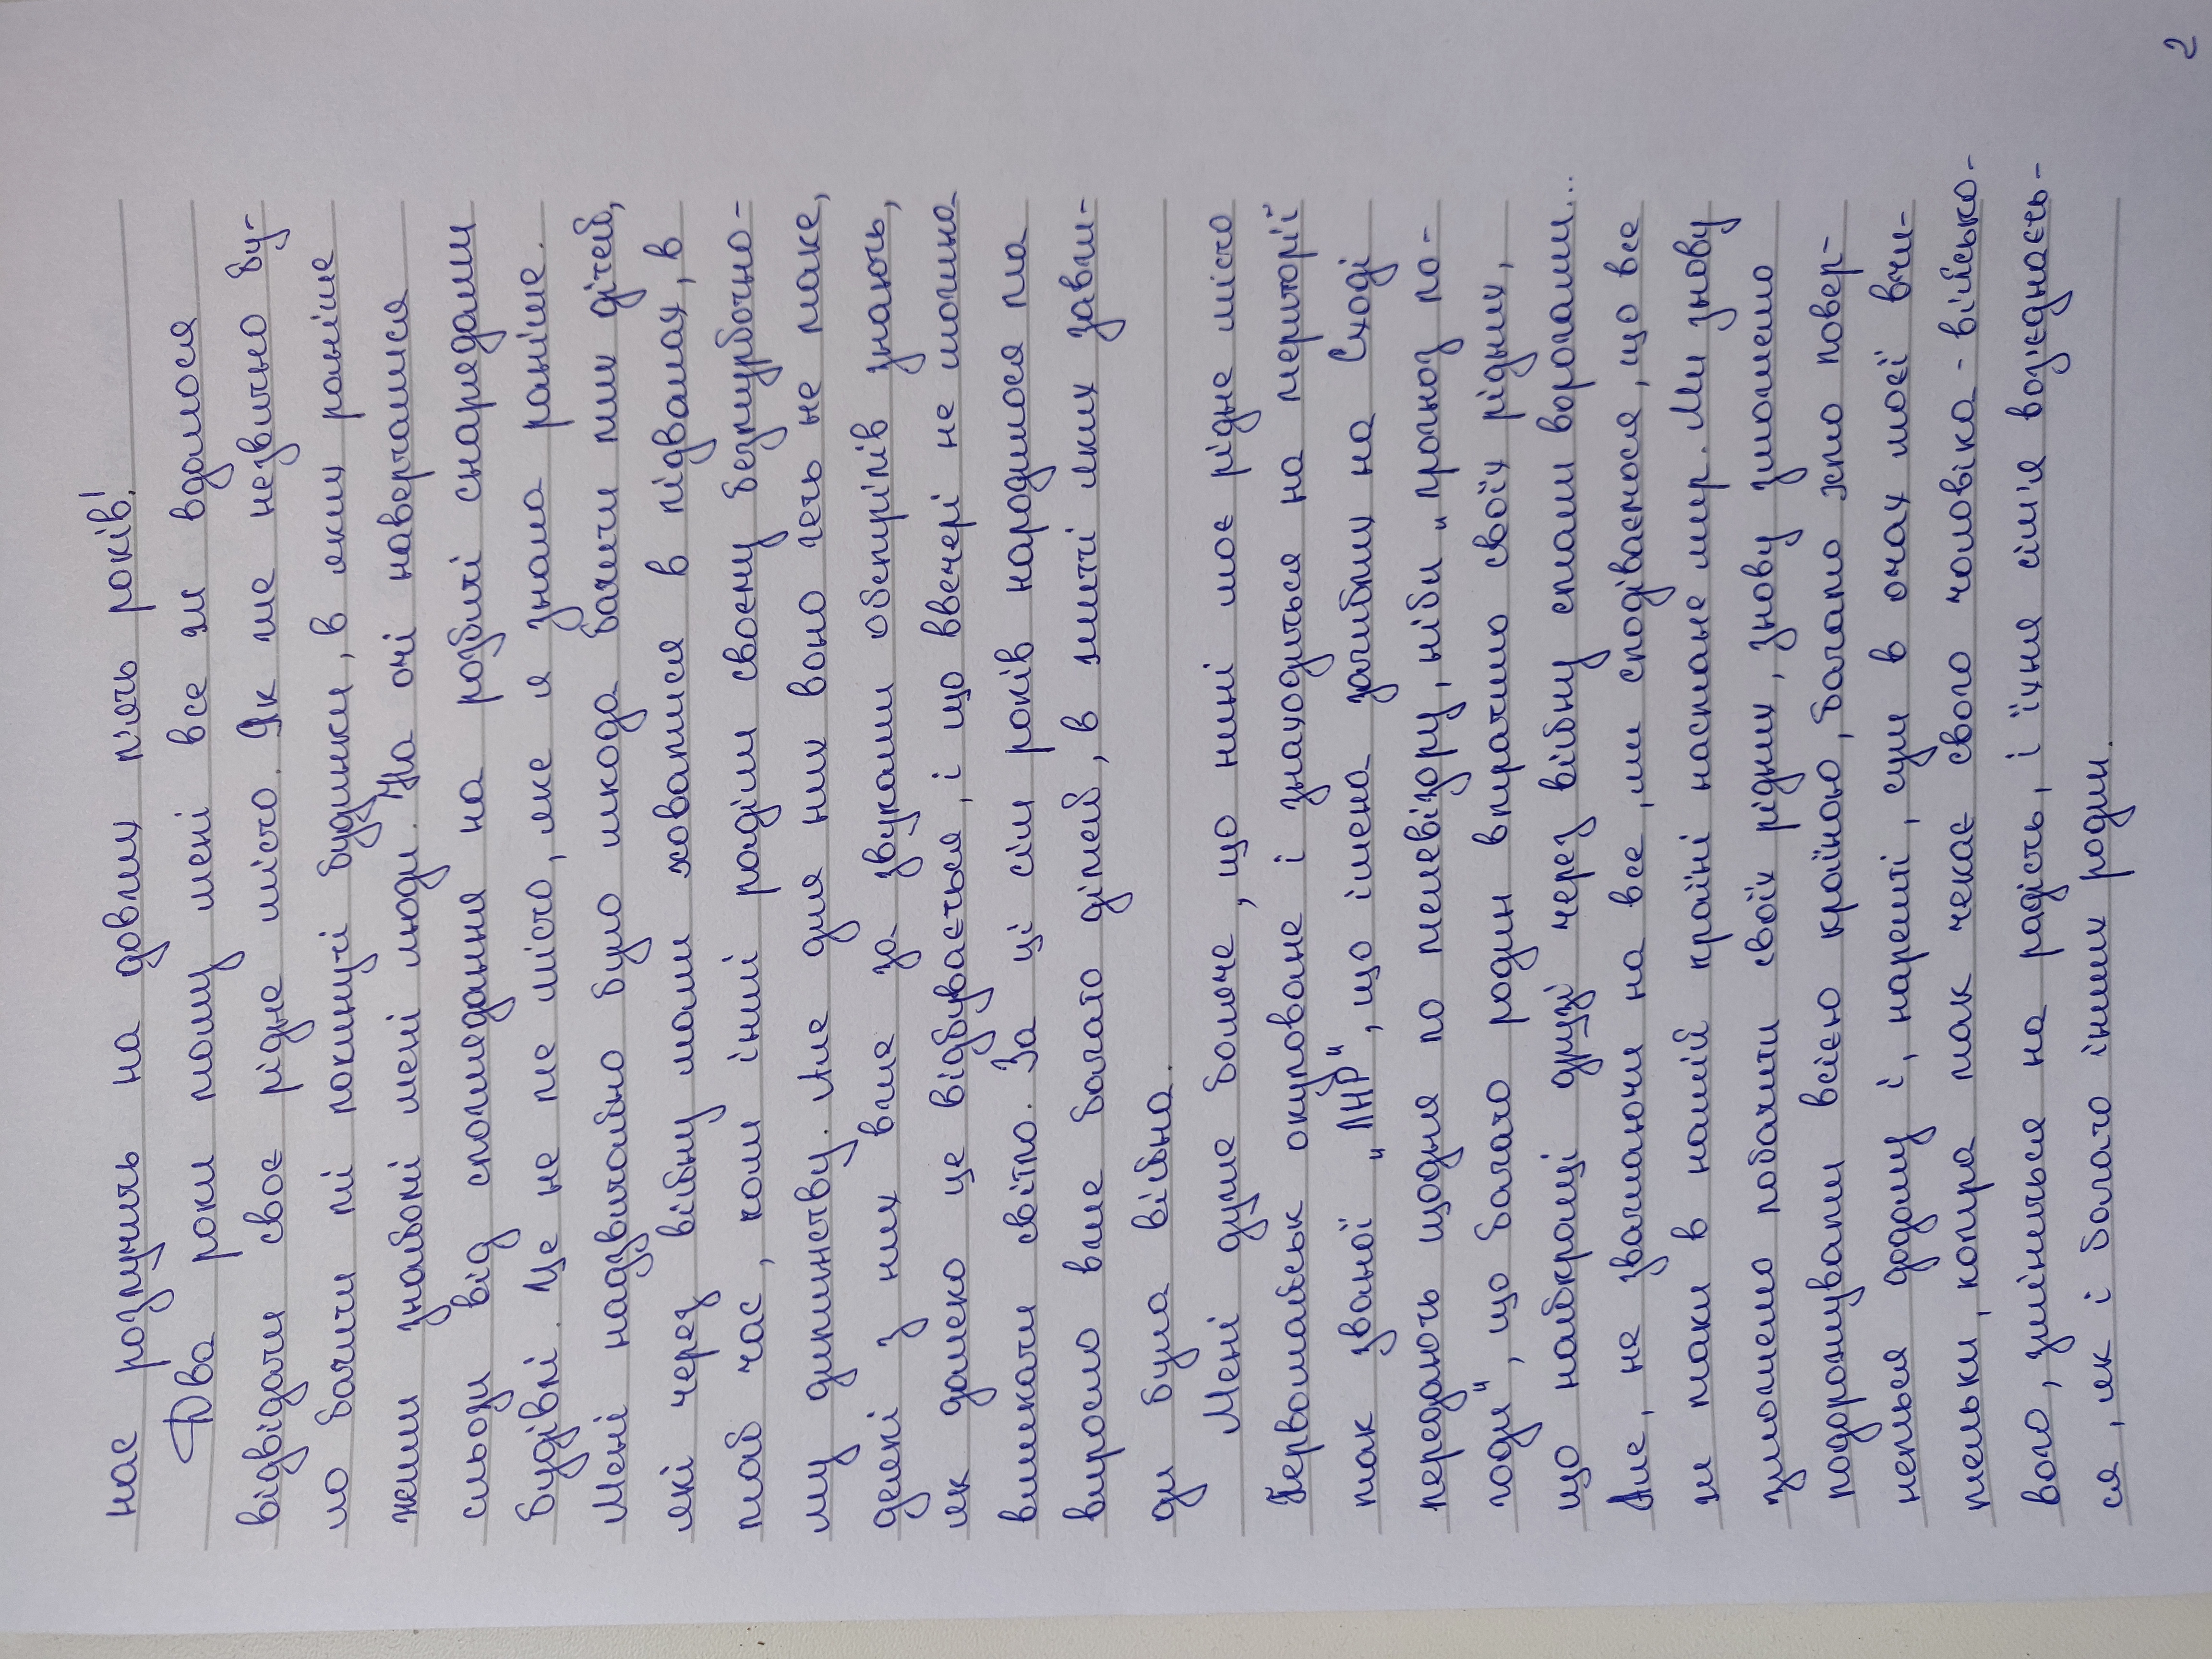 нас розлучить на довгих п'ять років!
Два роки тому мені все ж вдалося
відвідати своє рідне місто. Як же незвично бу-
ло бачити ті покинуті будинки, в яких раніше
жили знайомі мені люди. На очі наверталися
сльози від споглядання на розбиті снарядами
будівлі. Це не те місто, яке я знала раніше.
Мені надзвичайно було шкода бачити тих дітей,
які через війну мали ховатися в підвалах, в
той час, коли інші раділи своєму безтурботно-
му дитинству. Але для них воно геть не таке,
деякі з них вже за звуками обстрілів знають,
як далеко це відбувається, і що ввечері не можна
вмикати світло. За ці сім років народилося та
виросло вже багато дітей, в житті яких завж-
ди була війна.
Мені дуже боляче, що нині моє рідне місто
Первомайськ окуповане і знаходиться на території
так званої „ЛНР", що імена загиблих на Сході
передають щодня по телевізору, ніби „прогноз по-
годи", що багато родин втратило своїх рідних,
що найкращі друзі через війну стали ворогами...
Але, не зважаючи на все, ми сподіваємося, що все
ж таки в нашій країні настане мир. Ми знову
зможемо побачити своїх рідних, знову зможемо
подорожувати всією країною, багато хто повер-
неться додому і, нарешті, сум в очах моєї вчи-
тельки, котра так чекає свого чоловіка - військо-
вого, зміниться на радість, і їхня сім'я возз'єднаєть-
ся, як і багато інших родин.
2